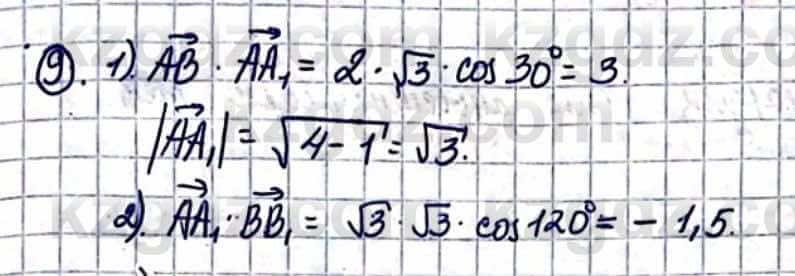 9. 1). \overrightarrow{AB} · \overrightarrow{AA₁} = 2 · √3 · cos 30° = 3.
|\overrightarrow{AA₁}| = √(4 - 1) = √3.
2). \overrightarrow{AA₁} · \overrightarrow{BB₁} = √3 · √3 · cos 120° = - 1,5.